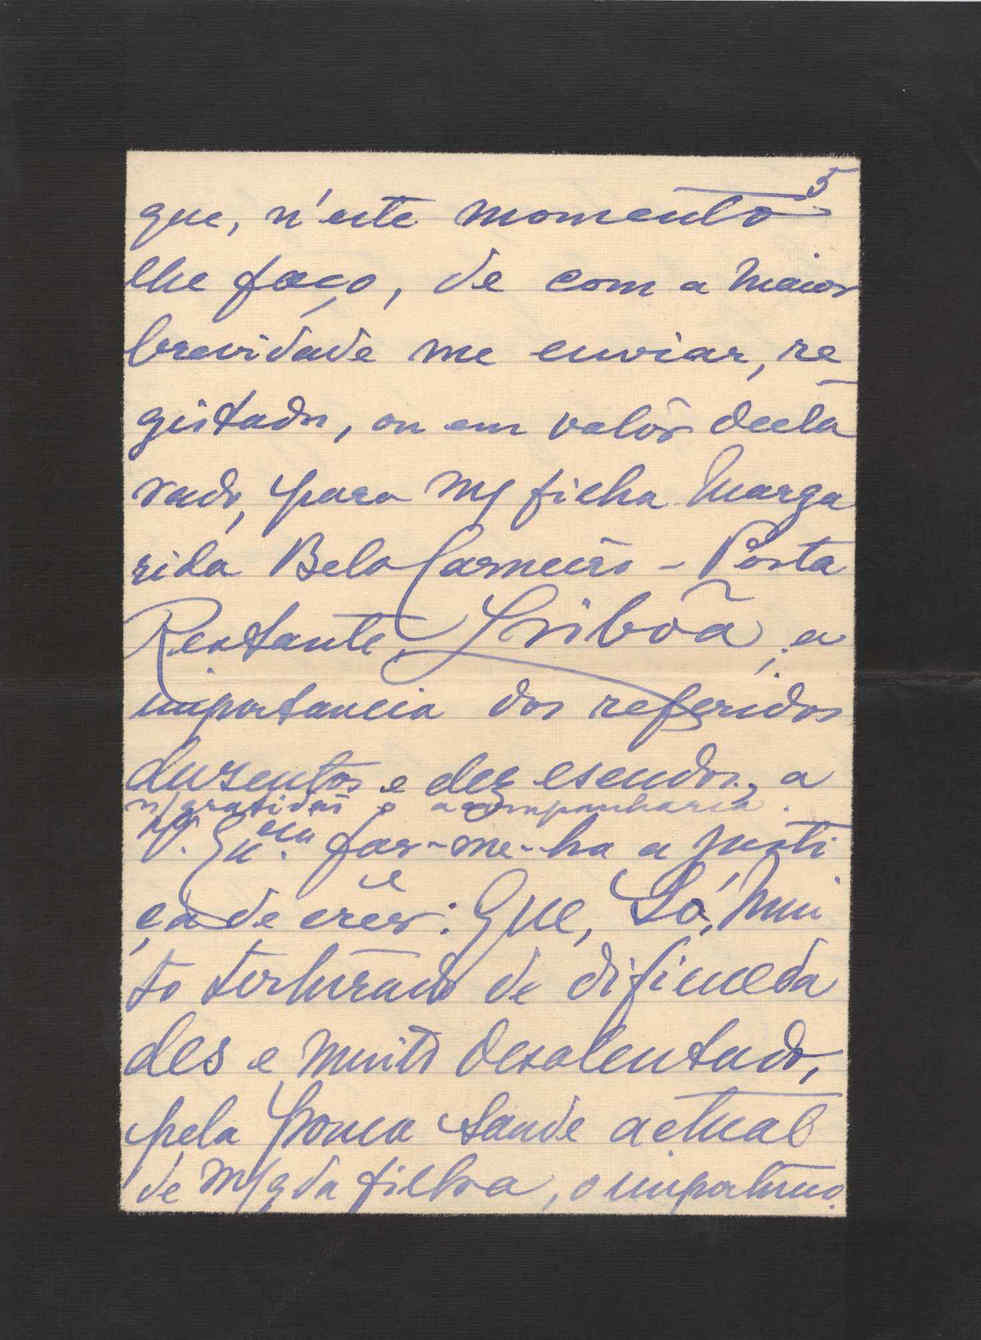 5
que, n'este momento
lhe faço, de com a maior
brevidade me enviar, re
gistado, ou em valôr decla
rado, para m/ filha Marga
rida Bela Carneiro - Posta
Restante, Lisbôa, a
importancia dos referidos
duzentos e dez escudos, a
n/ gratidão o acompanharia.
V. Ex.cia far-me-ha a justi
ça de crer: Que, Só, mui
to torturado de dificulda
des e muito desalentado,
pela pouca saude actual
de m/ qda filha, o importuno.